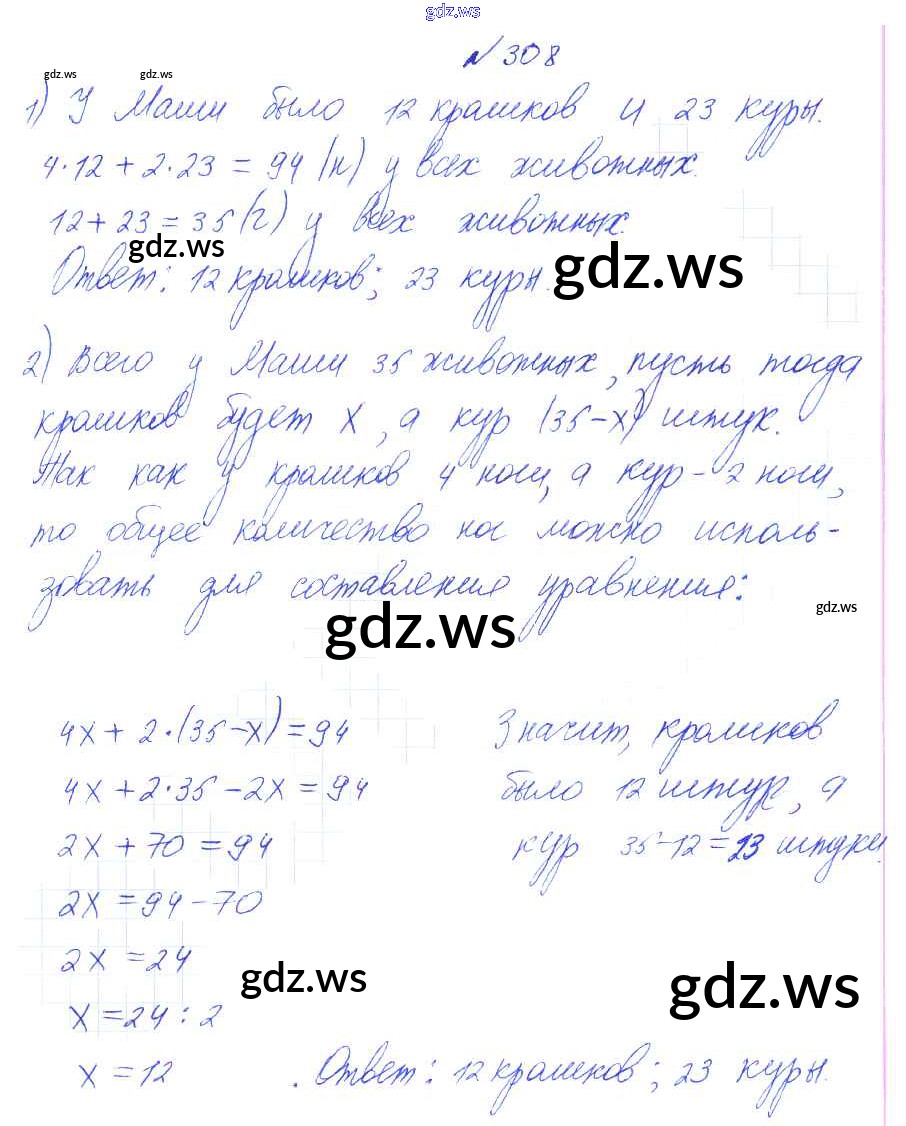 gdz.ws
№ 308
gdz.ws gdz.ws
1) У Маши было 12 кроликов и 23 куры.
4·12 + 2·23 = 94 (н) у всех животных.
12 + 23 = 35 (г) у всех животных.
gdz.ws gdz.ws
Ответ: 12 кроликов; 23 куры.
2) Всего у Маши 35 животных, пусть тогда
кроликов будет х, а кур (35-х) штук.
Так как у кроликов 4 ноги, а кур - 2 ноги,
то общее количество ног можно исполь-
зовать для составления уравнения:
gdz.ws gdz.ws
4х + 2·(35-х) = 94
4х + 2·35 - 2х = 94
2х + 70 = 94
2х = 94 - 70
2х = 24
х = 24 : 2
х = 12
Значит, кроликов
было 12 штук, а
кур 35-12=23 штуки.
gdz.ws gdz.ws
. Ответ: 12 кроликов; 23 куры.